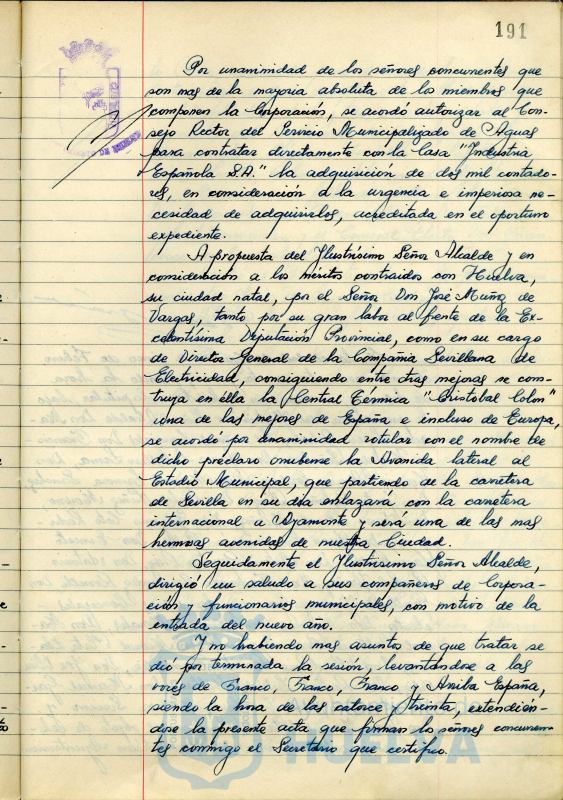 191
Por unanimidad de los señores concurrentes que
son mas de la mayoria absoluta de los miembros que
componen la Corporación, se acordó autorizar al Con-
sejo Rector del Servicio Municipalizado de Aguas
para contratar directamente con la Casa "Industria
Española S.A." la adquisición de dos mil contado-
res, en consideración a la urgencia e imperiosa ne-
cesidad de adquirirlos, acreditada en el oportuno
expediente.
A propuesta del Ylustrísimo Señor Alcalde y en
consideración a los méritos contraidos con Huelva,
su ciudad natal, por el Señor Don José Muñoz de
Vargas, tanto por su gran labor al frente de la Ex-
celentísima Diputación Provincial, como en su cargo
de Director General de la Compañia Sevillana de
Electricidad, consiguiendo entre otras mejoras se cons-
truya en élla la Central Térmica "Cristóbal Colón"
una de las mejores de España e incluso de Europa,
se acordó por unanimidad rotular con el nombre de
dicho preclaro onubense la Avenida lateral al
Estadio Municipal, que partiendo de la carretera
de Sevilla en su dia enlazará con la carretera
internacional a Ayamonte y será una de las mas
hermosas avenidas de nuestra Ciudad.
Seguidamente el Ylustrísimo Señor Alcalde,
dirigió un saludo a sus compañeros de Corpora-
ción y funcionarios municipales, con motivo de la
entrada del nuevo año.
Y no habiendo mas asuntos de que tratar se
dió por terminada la sesión, levantandose a las
voces de Franco, Franco, Franco y Arriba España,
siendo la hora de las catorce y treinta, extendién-
dose la presente acta que firman los señores concurren-
tes conmigo el Secretario que certifico.
HUELVA